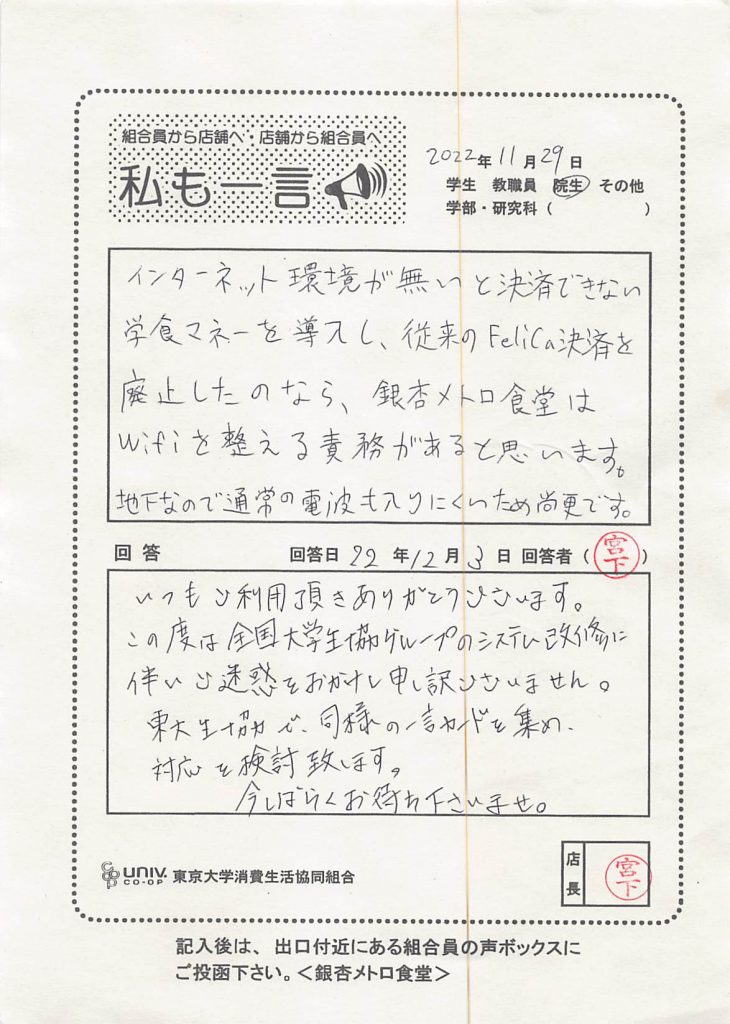 組合員から店舗へ・店舗から組合員へ
私も一言
2022年11月29日
学生 教職員 院生 その他
学部・研究科( )
インターネット環境が無いと決済できない
学食マネーを導入し、従来のFeliCa決済を
廃止したのなら、銀杏メトロ食堂は
Wifiを整える責務があると思います。
地下なので通常の電波も入りにくいため尚更です。
回答 回答日 22年12月3日 回答者(宮下)
いつもご利用頂きありがとうございます。
この度は全国大学生協グループのシステム改修に
伴いご迷惑をおかけし申し訳ございません。
東大生協で、同様の一言カードを集め、
対応を検討致します。
今しばらくお待ち下さいませ。
coop UNIV. CO-OP 東京大学消費生活協同組合
店長 宮下
記入後は、出口付近にある組合員の声ボックスに
ご投函下さい。<銀杏メトロ食堂>